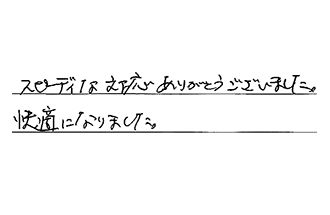 スピーディな対応ありがとうございました。
快適になりました。